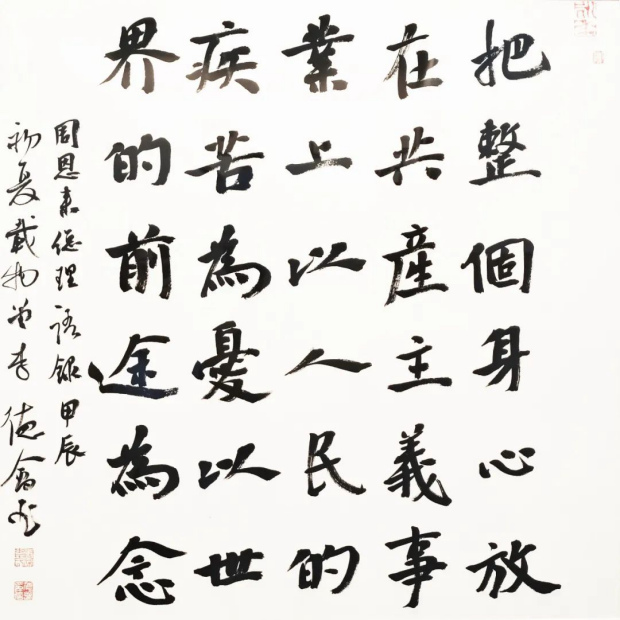 把整個身心放
在共產主義事
業上以人民的
疾苦為憂以世
界的前途為念
周恩來總理語錄甲辰
初夏載物堂李德